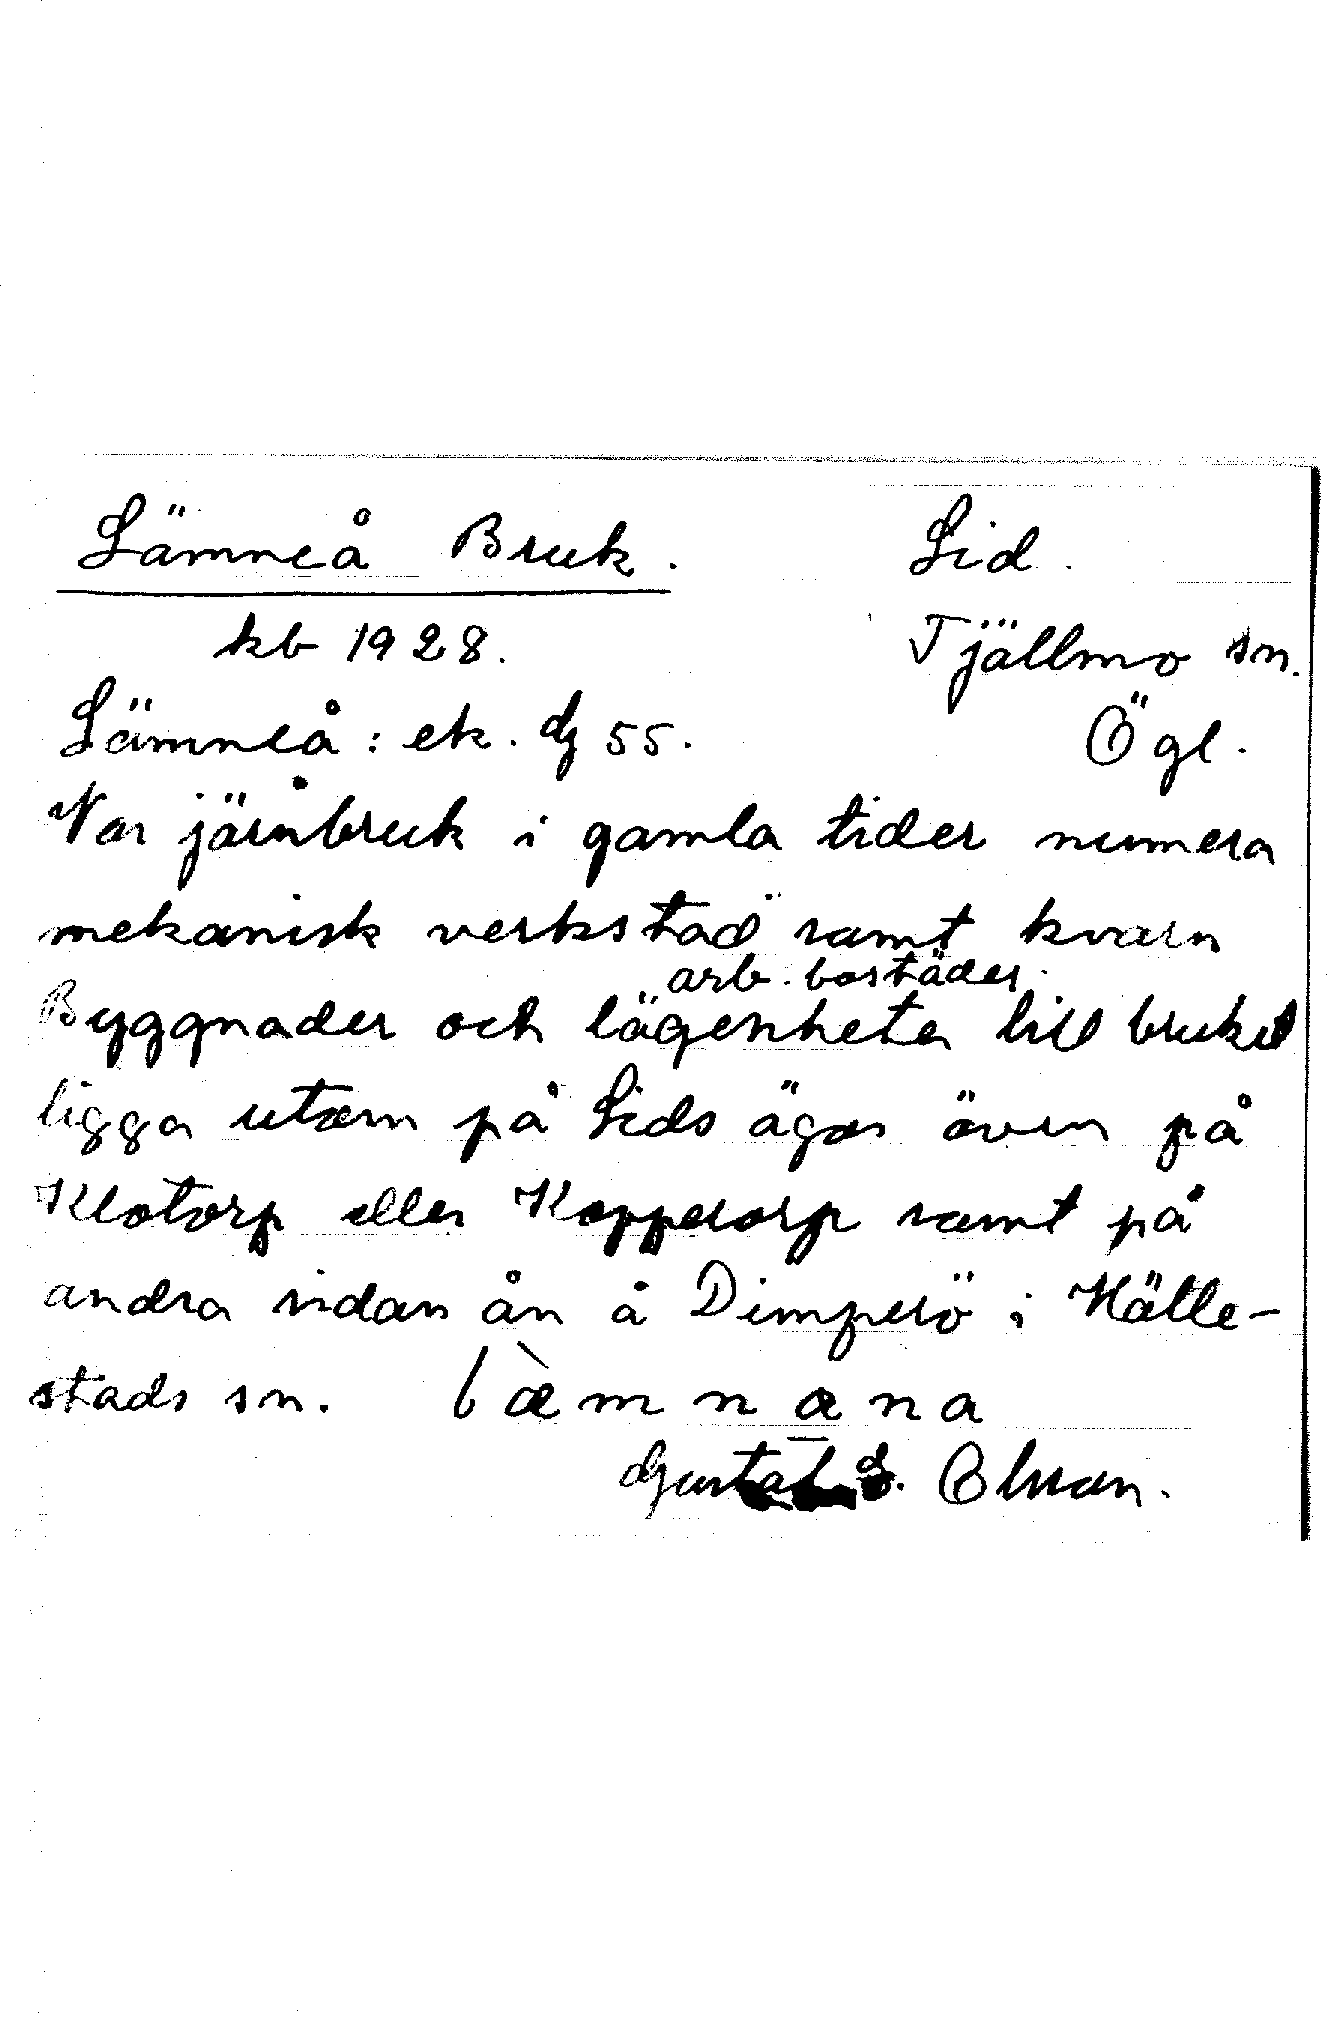 Lämneå Bruk. Lid.
kb 1928. Tjällmo sn.
Lämneå: ek. dg 55. Ögl.
Var järnbruk i gamla tider numera
mekanisk verkstad samt kvarn
arb. bostäder.
Byggnader och lägenheter till bruket
ligga utom på Lids ägor även på
Klotorp eller Koppetorp samt på
andra sidan ån å Dimpesö i Hälle-
stads sn. læmnana
Gustaf Olsson.